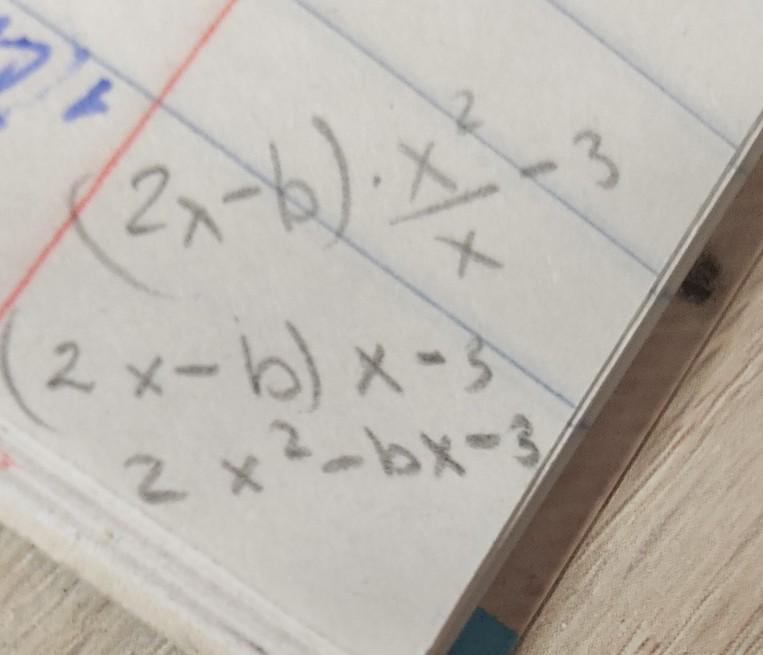 (2x-b)·x²/x-3
(2x-b)x-3
2x²-bx-3